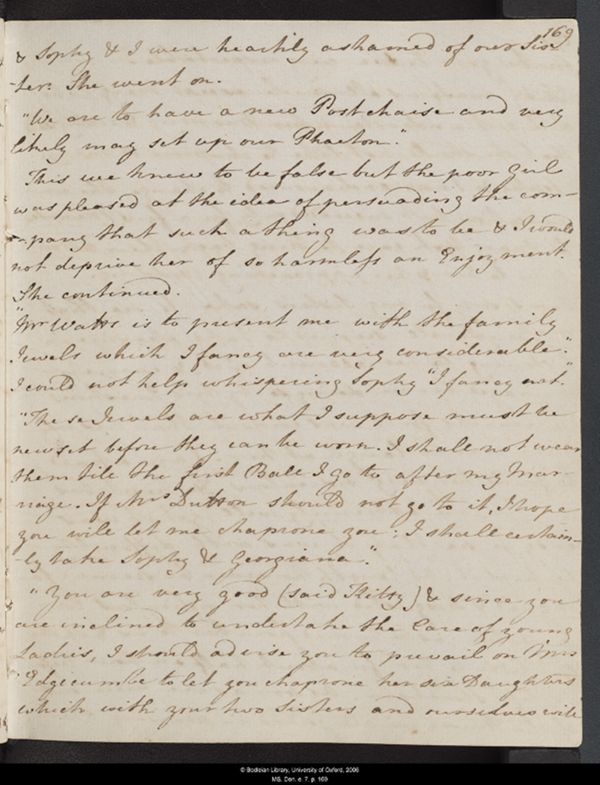 169
& Sophy & I were heartily ashamed of our Sis-
-ter. She went on.
"We are to have a new Postchaise and very
likely may set up our Phaeton."
This we knew to be false but the poor Girl
was pleased at the idea of persuading the com-
-pany that such a thing was to be & I would
not deprive her of so harmless an Enjoyment.
She continued.
"Mr Watts is to present me with the family
Jewels which I fancy are very considerable."
I could not help whispering Sophy "I fancy not."
"These Jewels are what I suppose must be
new set before they can be worn. I shall not wear
them till the first Ball I go to after my Mar-
riage. If Mrs Dutton should not go to it, I hope
you will let me chaprone you; I shall certain-
-ly take Sophy & Georgiana."
"You are very good (said Kitty) & since you
are inclined to undertake the Care of young
Ladies, I should advise you to prevail on Mrs
Edgecumbe to let you chaprone her six Daughters
which with your two Sisters and ourselves will
© Bodleian Library, University of Oxford, 2006
MS. Don. e. 7, p. 169